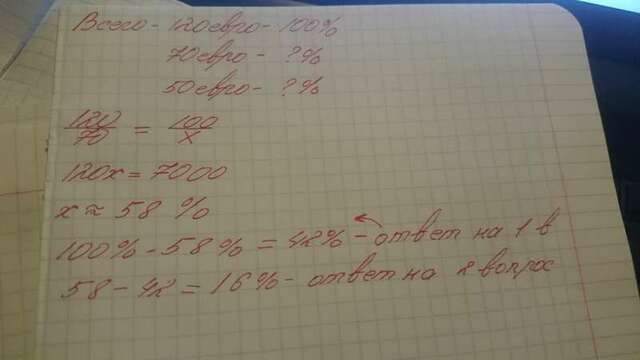 Всего - 120 евро - 100%
70 евро - ? %
50 евро - ? %
120/70 = 100/x
120x = 7000
x ≈ 58 %
100% - 58% = 42% - ответ на 1 в
58 - 42 = 16% - ответ на 2 вопрос